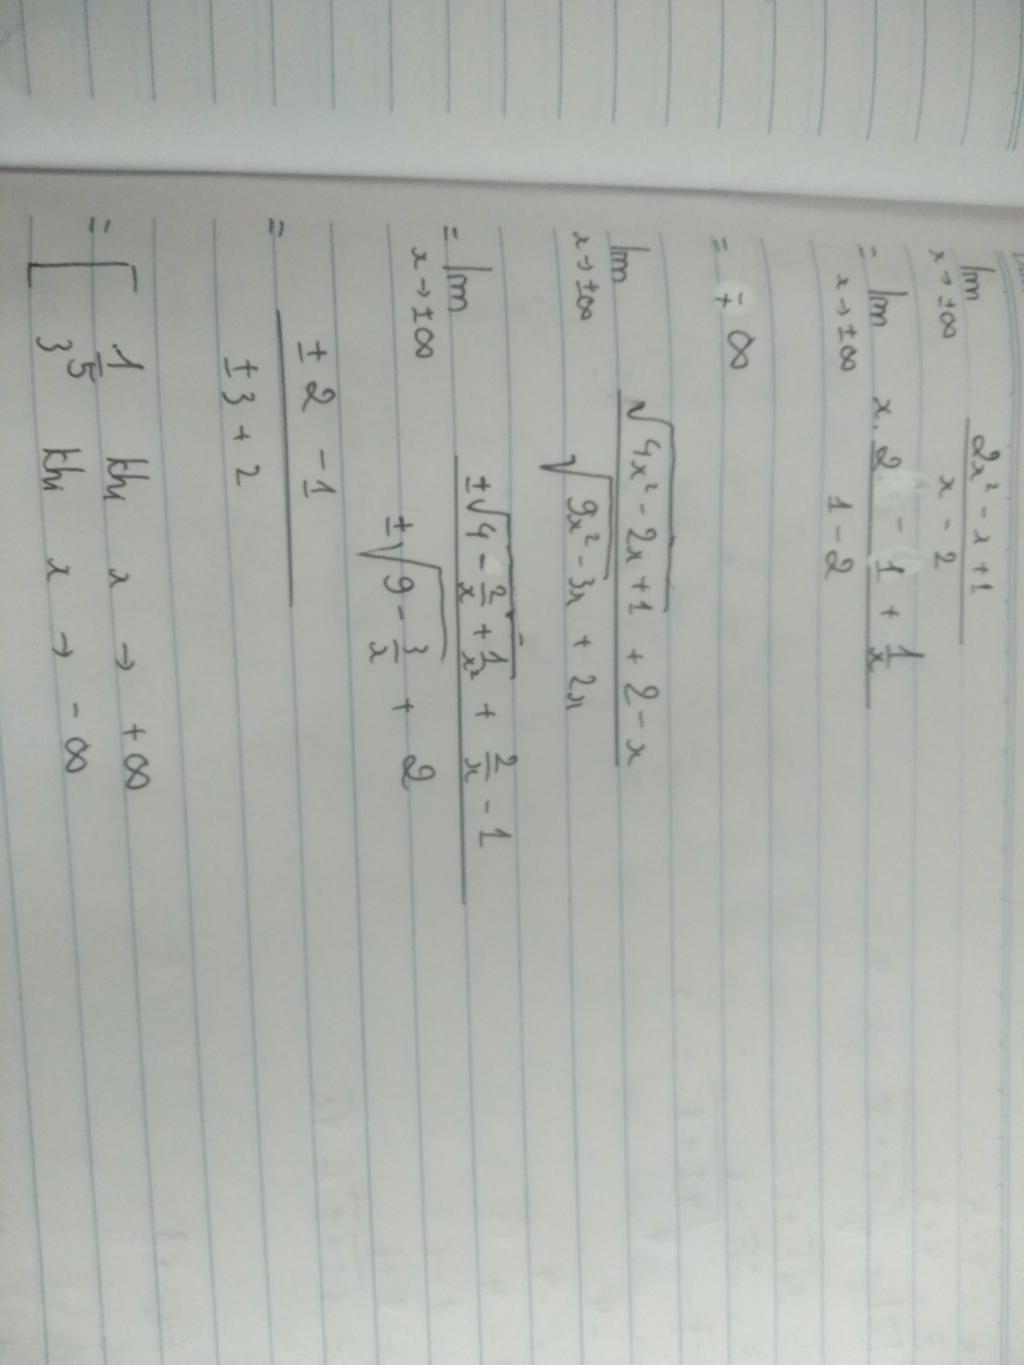 lim 2x² - x + 1
x → ±∞ x - 2
= lim x. 2 - 1 + 1/x
x → ±∞ 1 - 2
= ∓ ∞
lim √(4x² - 2x + 1) + 2 - x
x → ±∞ √(9x² - 3x) + 2x
= lim ±√(4 - 2/x + 1/x²) + 2/x - 1
x → ±∞ ±√(9 - 3/x) + 2
= ± 2 - 1
± 3 + 2
= [ 1/5 khi x → +∞
3 khi x → -∞